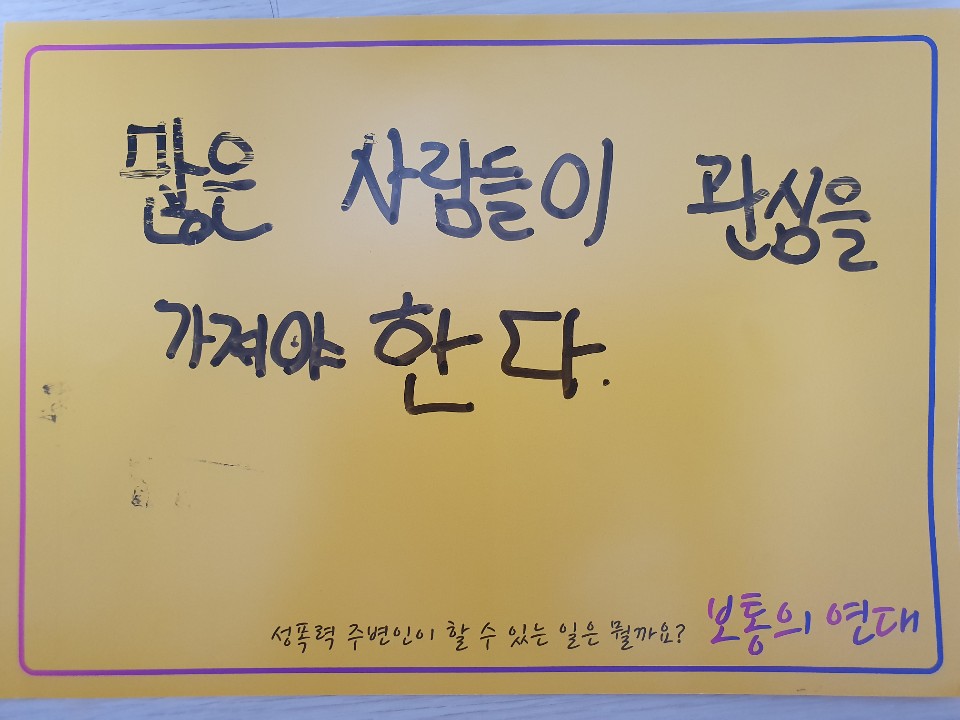 많은 사람들이 관심을
가져야 한다.
성폭력 주변인이 할 수 있는 일은 뭘까요? 보통의 연대